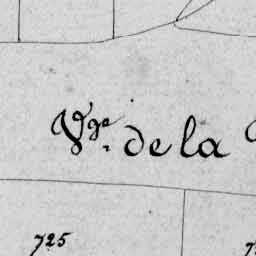 Vge. de la
725